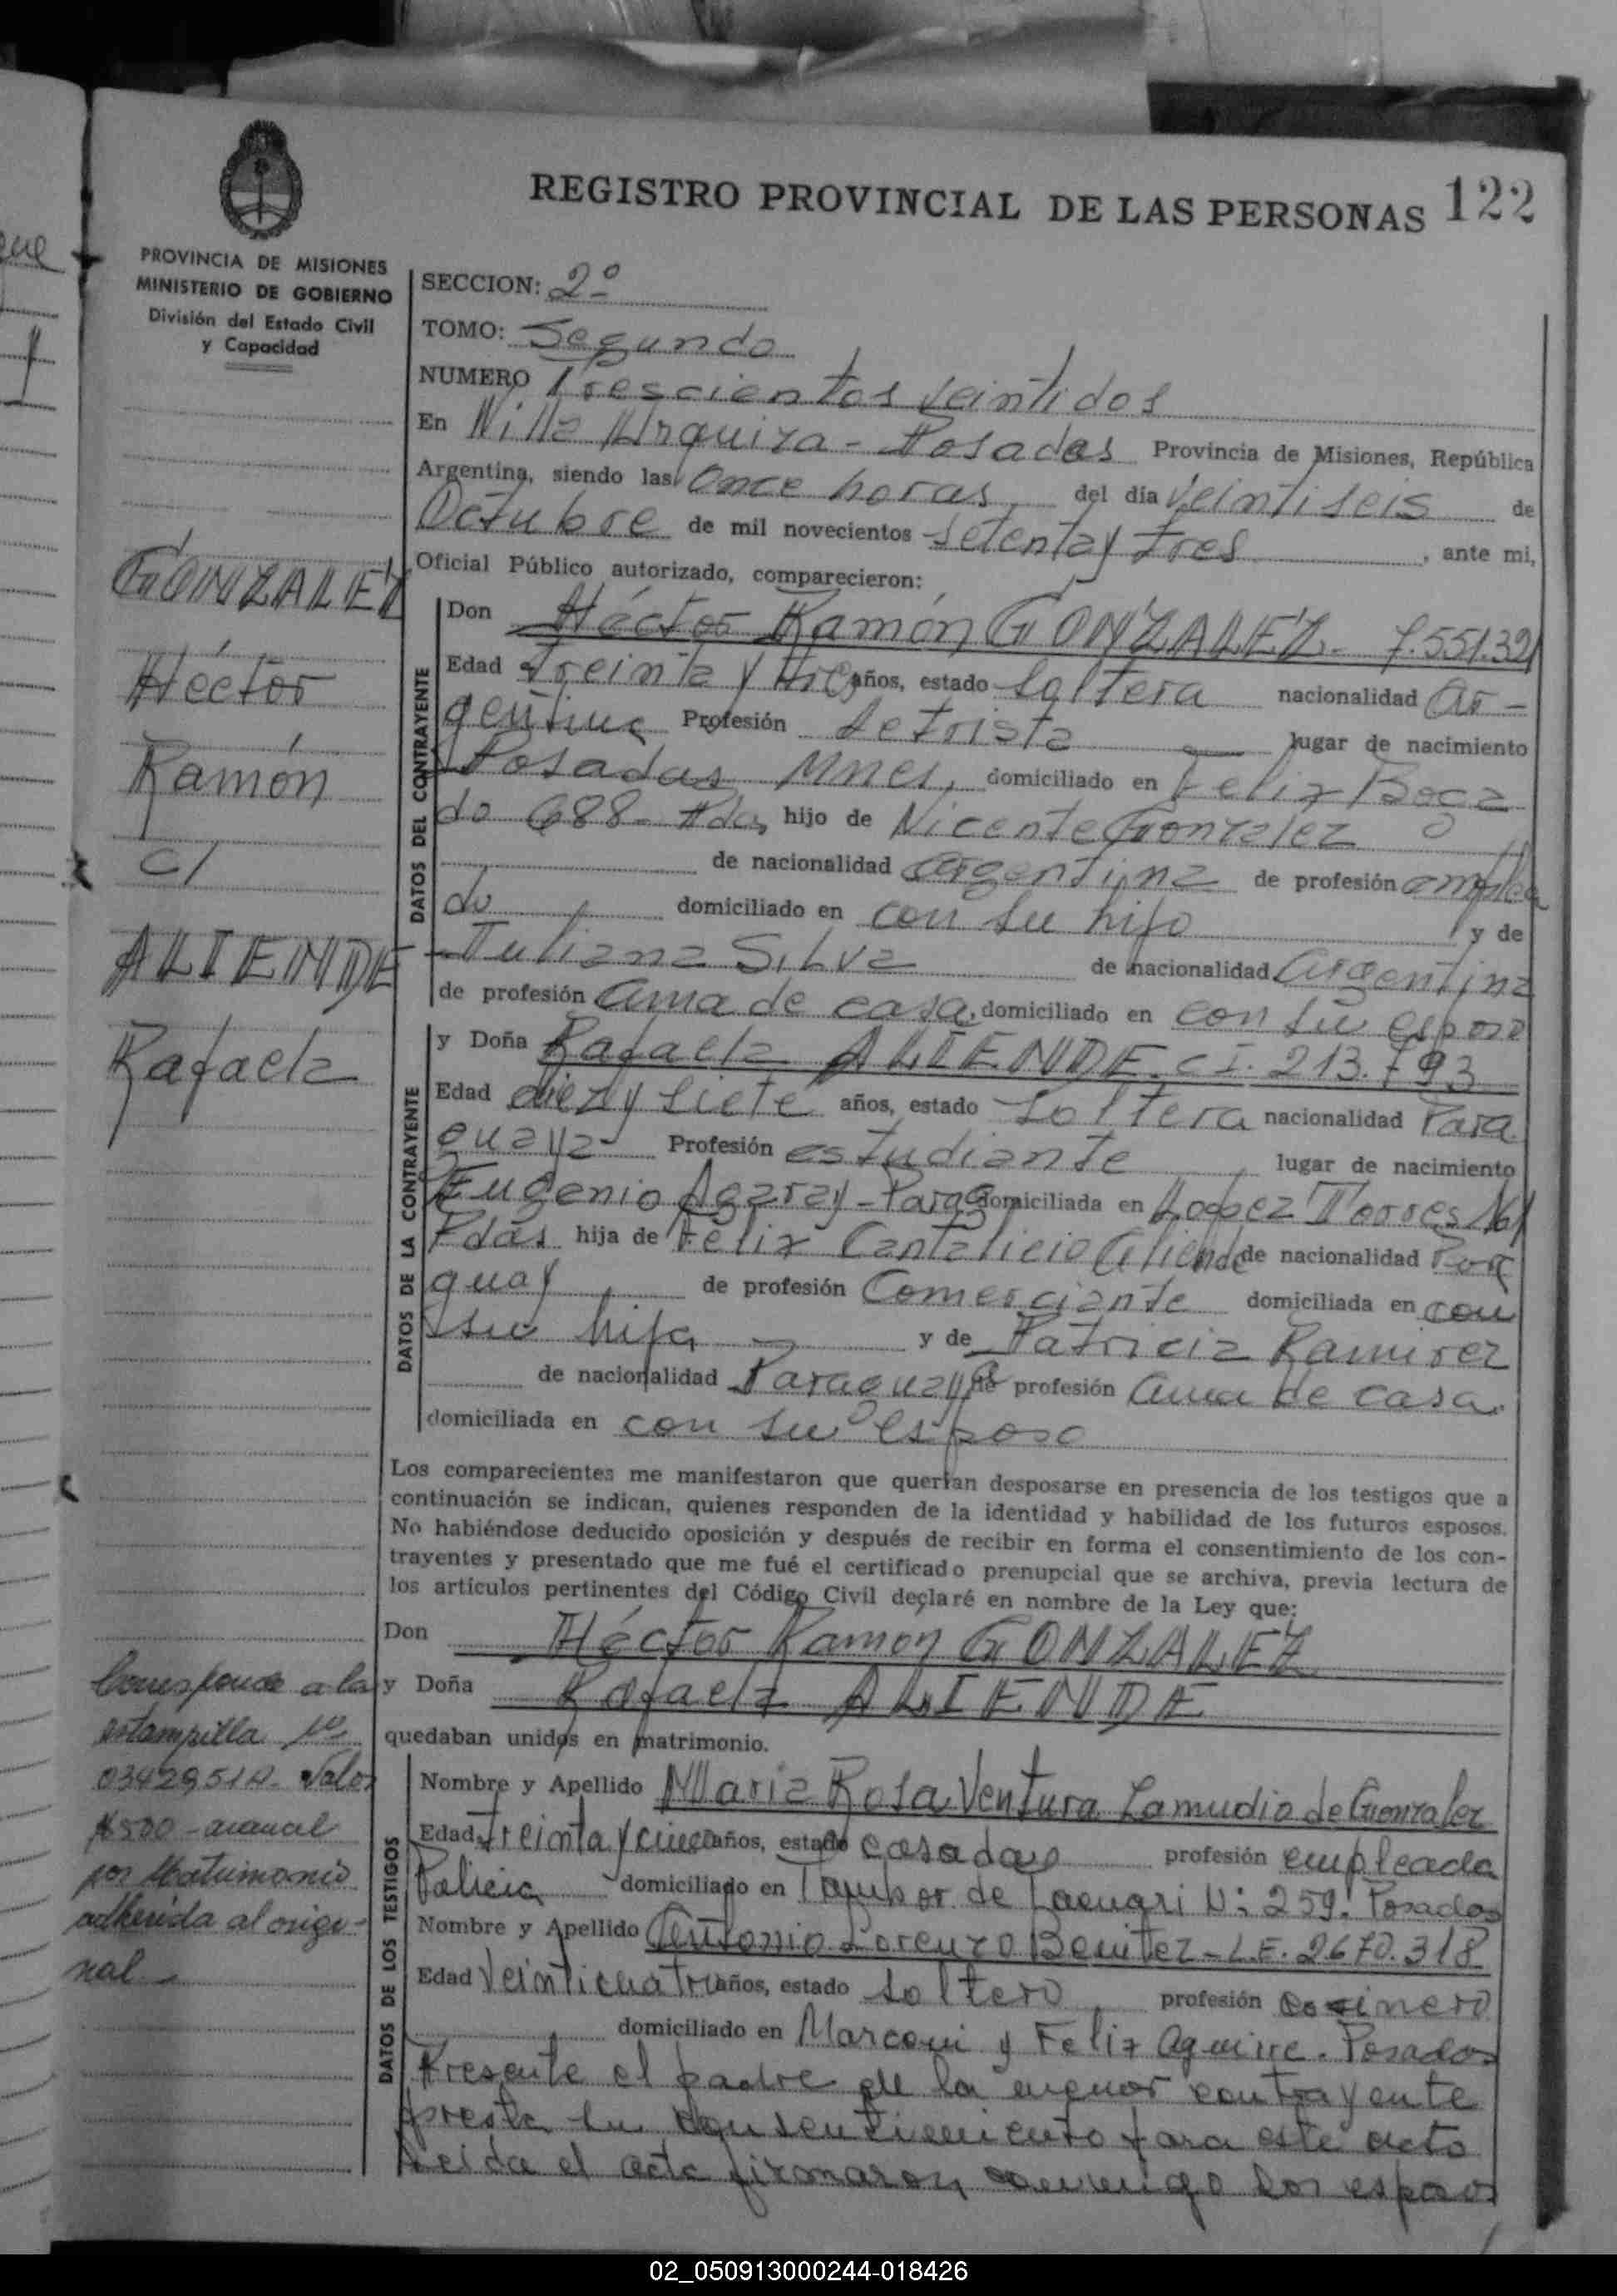 REGISTRO PROVINCIAL DE LAS PERSONAS 122
PROVINCIA DE MISIONES
MINISTERIO DE GOBIERNO
División del Estado Civil
y Capacidad
SECCION: 2º
TOMO: Segundo
NUMERO Trescientos veintidos
En Villa Urquiza - Posadas Provincia de Misiones, República
Argentina, siendo las Once horas del día veintiseis de
Octubre de mil novecientos setenta y tres, ante mi,
Oficial Público autorizado, comparecieron:
GONZALEZ
Héctor
Ramón
c/
ALIENDE
Rafaela
DATOS DEL CONTRAYENTE
Don Héctor Ramón GONZALEZ - 7.551.321
Edad treinta y tres años, estado soltera nacionalidad Ar-
gentina Profesión Letrista lugar de nacimiento
Posadas Mnes, domiciliado en Felix Boga
do 688 - Pdas hijo de Vicente González
de nacionalidad argentina de profesión emplea
do domiciliado en con su hijo y de
Juliana Silva de nacionalidad Argentina
de profesión ama de casa, domiciliado en con su esposo
DATOS DE LA CONTRAYENTE
y Doña Rafaela ALIENDE C.I. 213.793
Edad diez y siete años, estado soltera nacionalidad Para
guaya Profesión estudiante lugar de nacimiento
Eugenio Agaray - Parag domiciliada en Lopez Torres
Pdas hija de Felix Cantalicio Aliende de nacionalidad Para
guay de profesión Comerciante domiciliada en con
su hija y de Patricia Ramirez
de nacionalidad Paraguaya de profesión ama de casa.
domiciliada en con su esposo
Los comparecientes me manifestaron que querían desposarse en presencia de los testigos que a
continuación se indican, quienes responden de la identidad y habilidad de los futuros esposos.
No habiéndose deducido oposición y después de recibir en forma el consentimiento de los con-
trayentes y presentado que me fué el certificado prenupcial que se archiva, previa lectura de
los artículos pertinentes del Código Civil declaré en nombre de la Ley que:
Don Héctor Ramón GONZALEZ
y Doña Rafaela ALIENDE
quedaban unidos en matrimonio.
Corresponde a la
estampilla Nº
0342951A - Valor
$500 - arancel
por Matrimonio
adherida al origi-
nal -
DATOS DE LOS TESTIGOS
Nombre y Apellido Maria Rosa Ventura Zamudio de Gonzalez
Edad treinta y cinco años, estado casada profesión empleada
Policia domiciliado en Tambor de Tacuari N: 259. Posadas
Nombre y Apellido Antonio Lorenzo Benitez - L.E. 2670.318
Edad veinticuatro años, estado soltero profesión cocinero
domiciliado en Marconi y Felix Aguirre. Posadas
Presente el padre de la menor contrayente
presta su consentimiento para este acto
Leida el acta firmaron conmigo los esposos
02_050913000244-018426